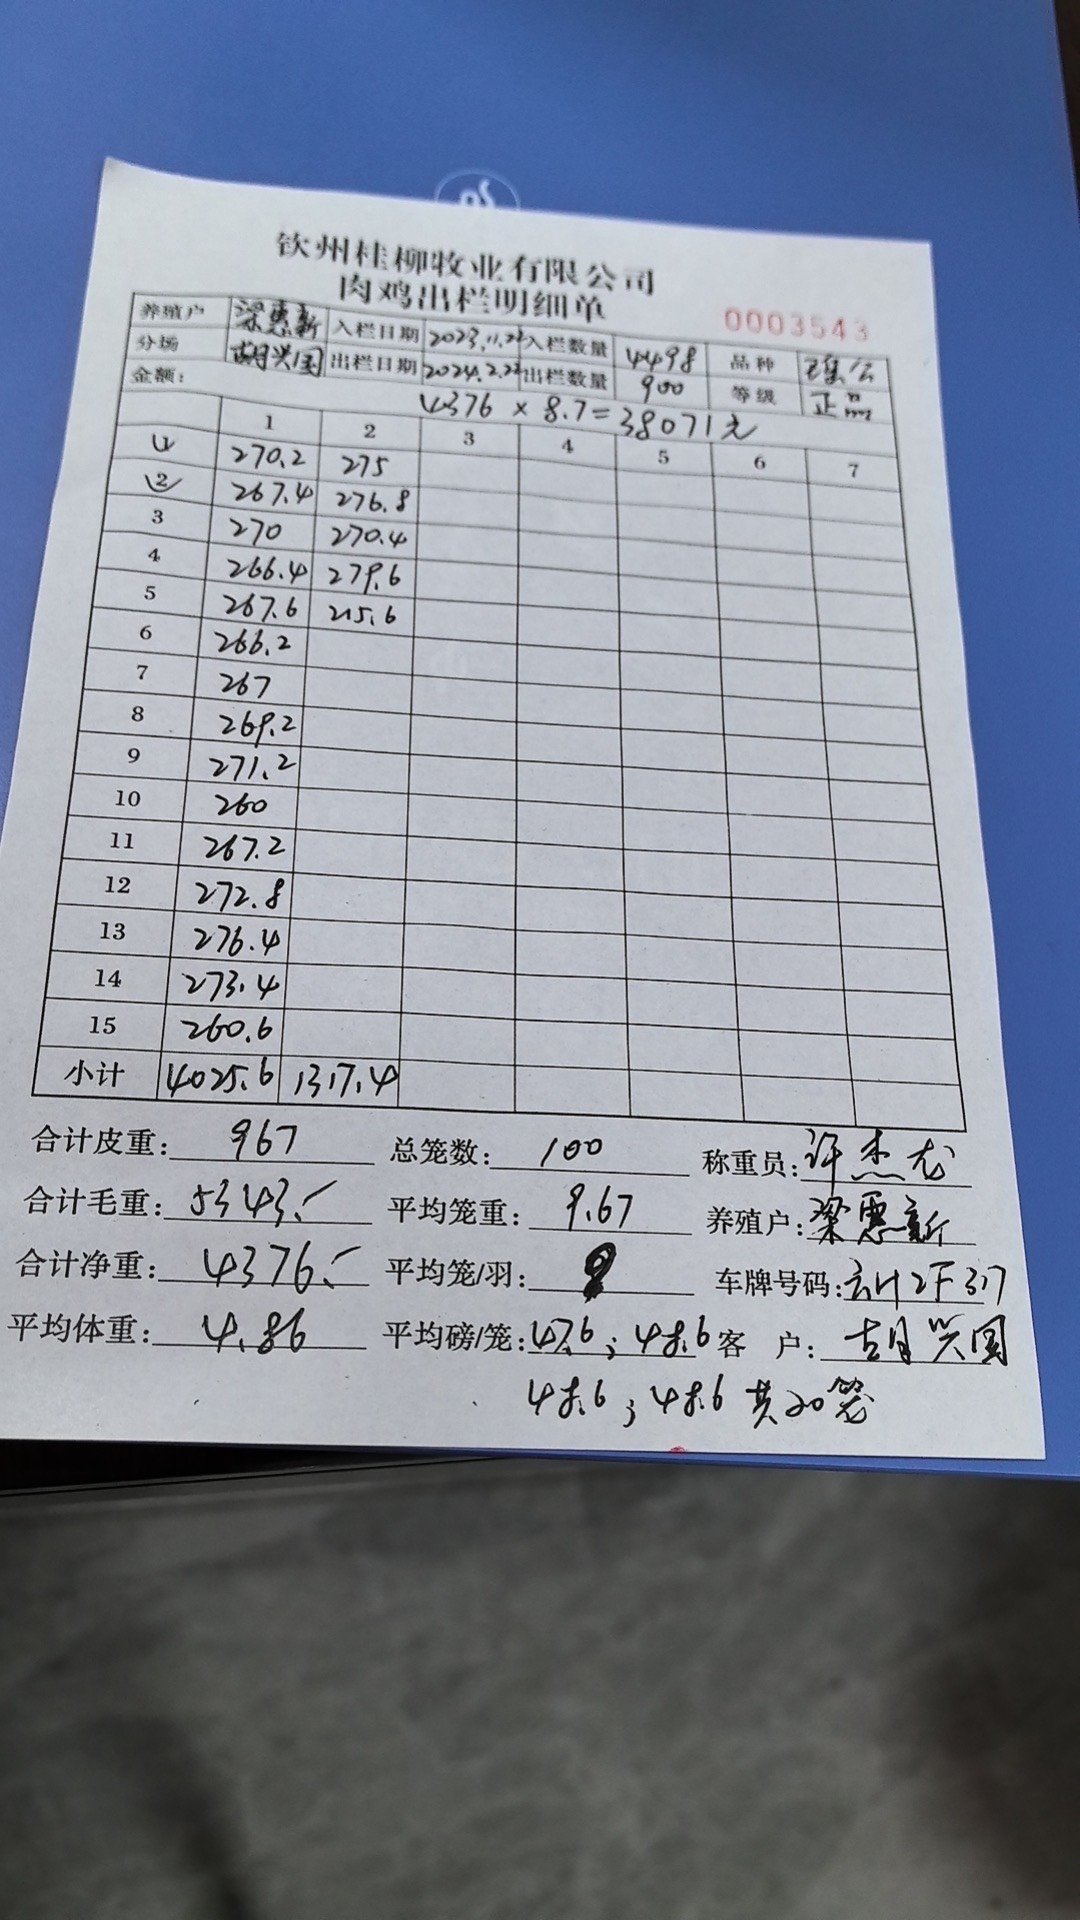 钦州桂柳牧业有限公司
肉鸡出栏明细单
0003543
养殖户 梁惠新 入栏日期 2023.11.22 入栏数量 4498 品种 瑶公
分场 胡兴国 出栏日期 2024.2.22 出栏数量 900 等级 正品
金额: 4376 × 8.7=38071元
1 2 3 4 5 6 7
1 270.2 275
2 267.4 276.8
3 270 270.4
4 266.4 279.6
5 267.6 215.6
6 266.2
7 267
8 269.2
9 271.2
10 260
11 267.2
12 272.8
13 276.4
14 273.4
15 260.6
小计 4025.6 1317.4
合计皮重: 967 总笼数: 100 称重员: 许杰龙
合计毛重: 5343 平均笼重: 9.67 养殖户: 梁惠新
合计净重: 4376 平均笼/羽: 9 车牌号码:
平均体重: 4.86 平均磅/笼: 47.6; 48.6 客 户: 胡兴国
48.6; 48.6 共20笼